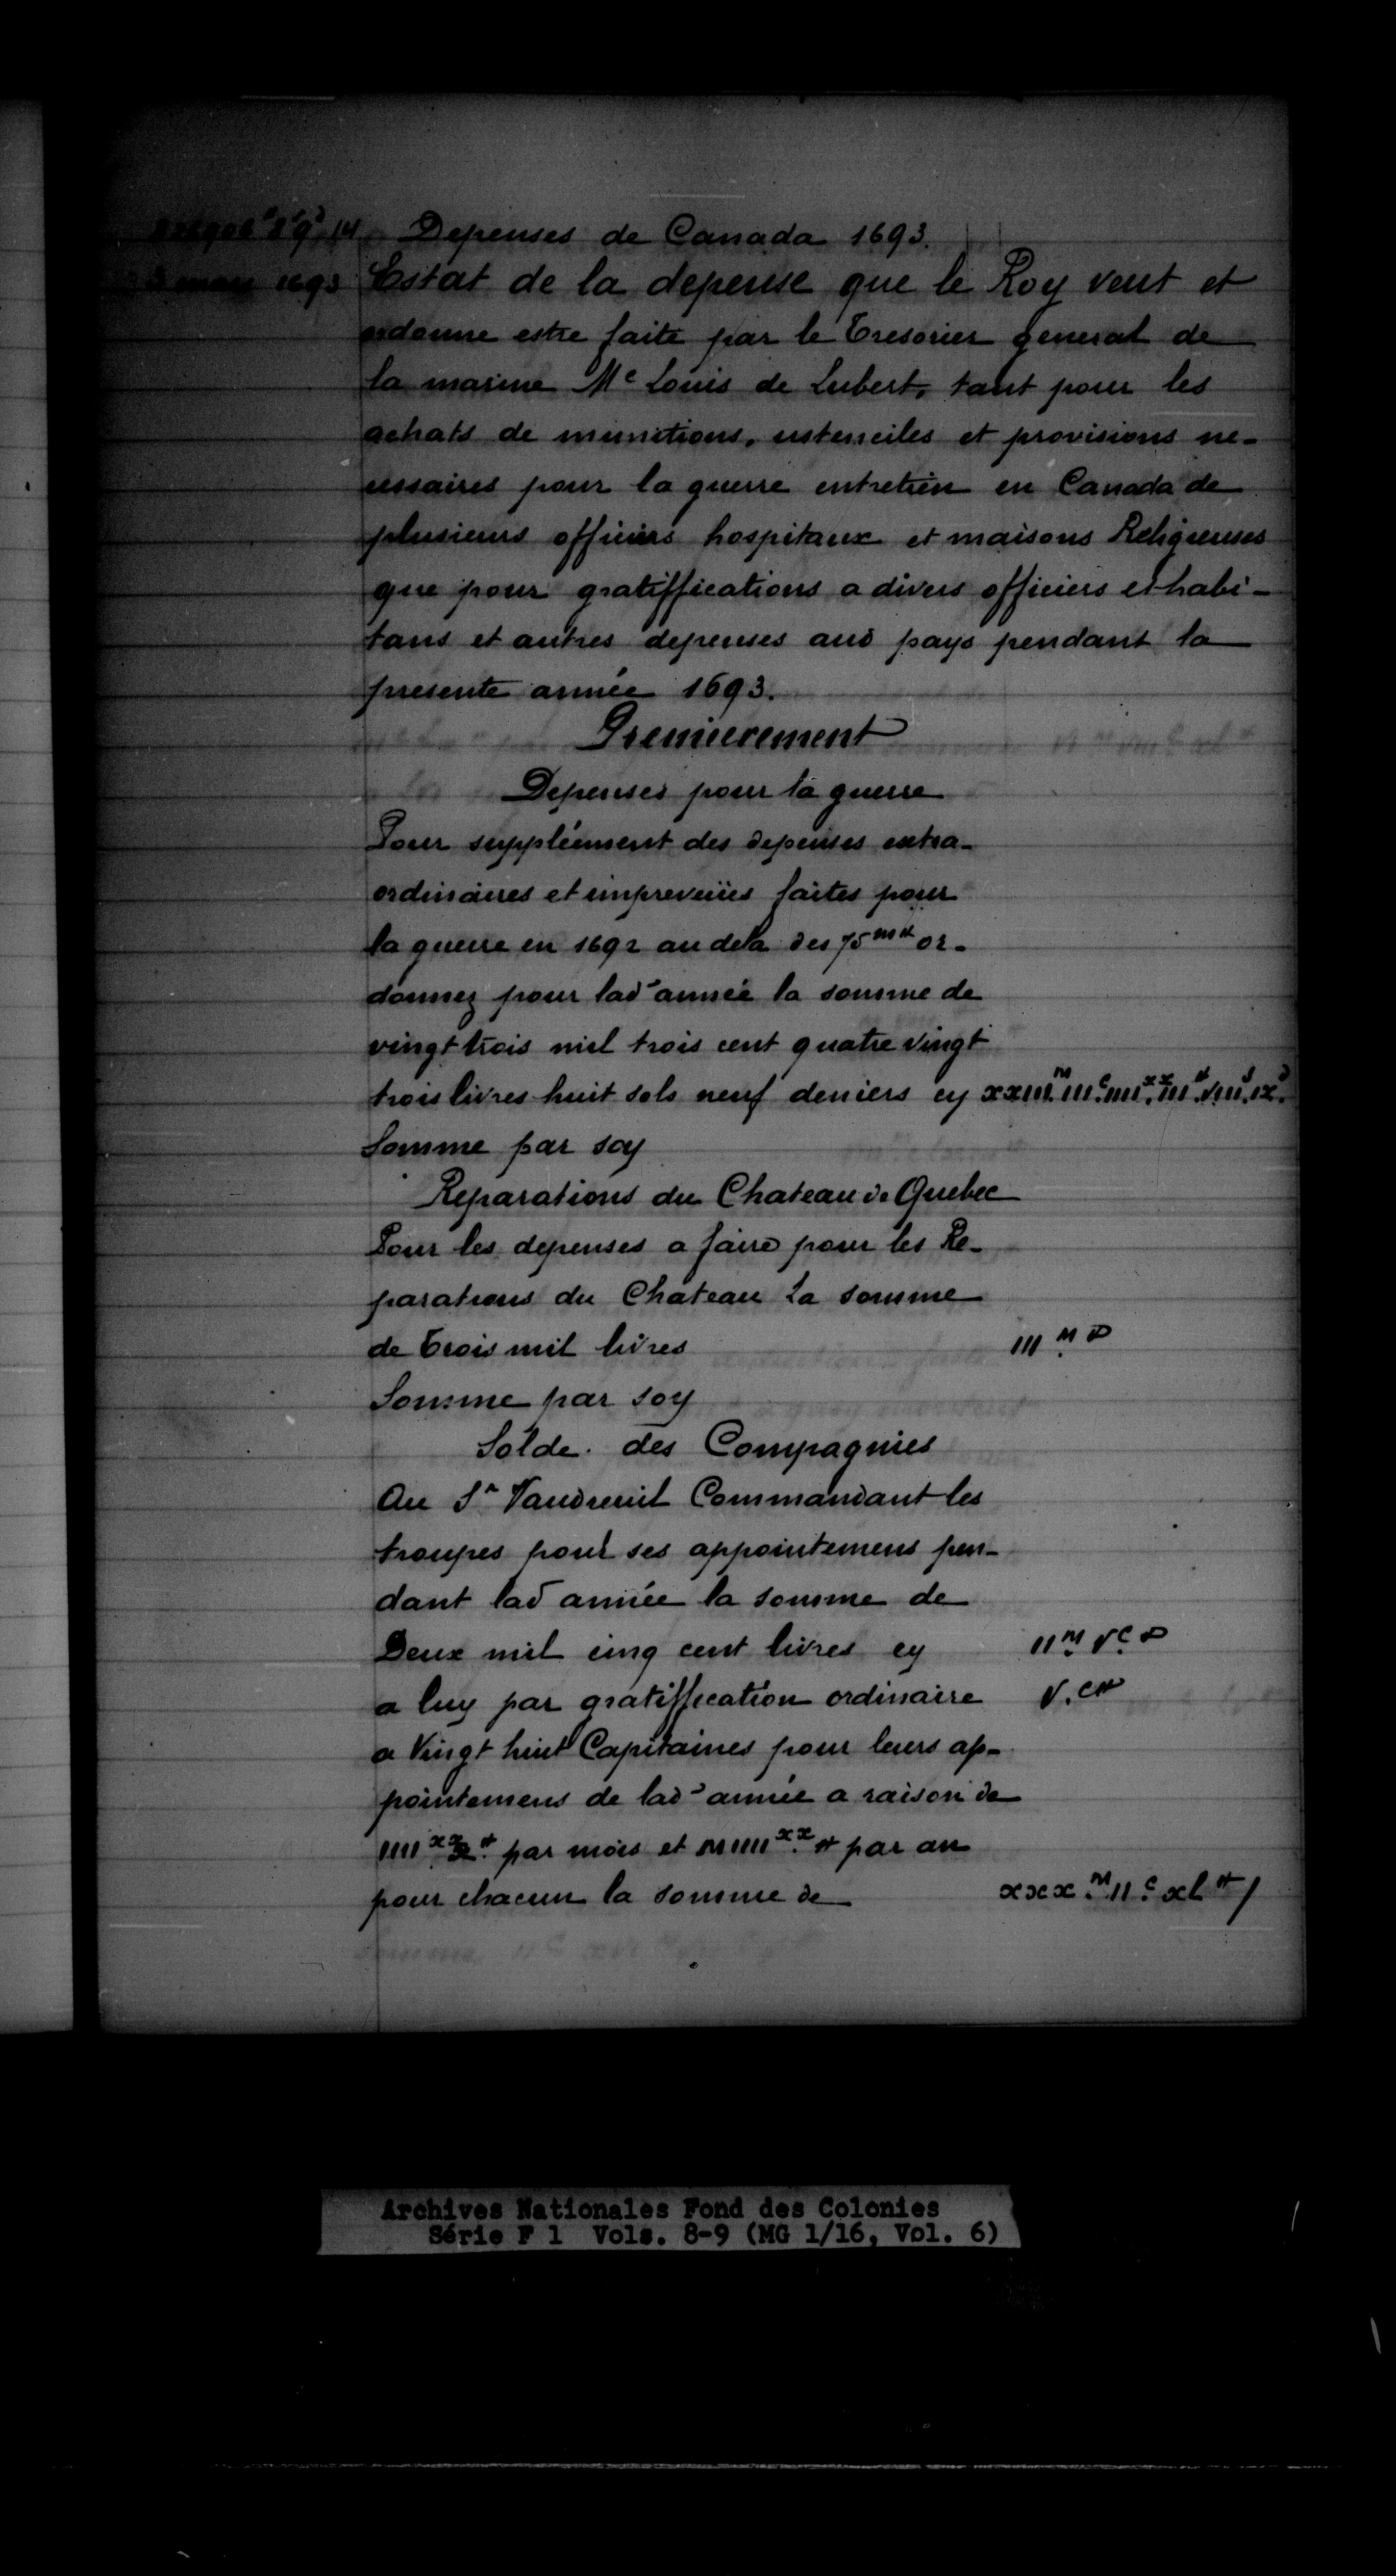 Depenses de Canada 1693.
may 1693
Estat de la depense que le Roy veut et
ordonne estre faite par le Tresorier general de
la marine Me Louis de Lubert, tant pour les
achats de munitions, ustenciles et provisions ne-
cessaires pour la guerre entretien en Canada de
plusieurs officiers hospitaux et maisons Religieuses
que pour gratiffications a divers officiers et habi-
tans et autres depenses aud pays pendant la
presente année 1693.
Premierement
Depenses pour la guerre
Pour supplément des depenses extra-
ordinaires et impreveües faites pour
la guerre en 1692 au dela des 75 m ₶ or-
donnez pour lad année la somme de
vingt trois mil trois cent quatre vingt
trois livres huit sols neuf deniers cy xxiii.M iii.C iiii.xx iii.₶ viii.s ix.d
Somme par soy
Reparations du Chateau de Quebec
Pour les depenses a faire pour les Re-
parations du Chateau La somme
de Trois mil livres iii M ₶
Somme par soy
Solde des Compagnies
Au Sr Vaudreuil Commandant les
troupes pour ses appointemens pen-
dant lad année la somme de
Deux mil cinq cent livres cy ii M v C ₶
a luy par gratiffication ordinaire v.C ₶
a Vingt huit Capitaines pour leurs ap-
pointemens de lad année a raison de
iiii xx x ₶ par mois et M iiii xx ₶ par an
pour chacun la somme de xxx.M ii.C xl ₶ /
Archives Nationales Fond des Colonies
Série F 1 Vols. 8-9 (MG 1/16, Vol. 6)